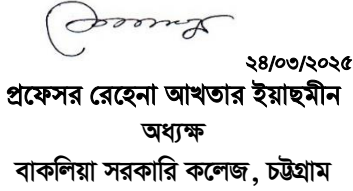 ২৪/০৩/২০২৫
প্রফেসর রেহেনা আখতার ইয়াছমীন
অধ্যক্ষ
বাকলিয়া সরকারি কলেজ, চট্টগ্রাম